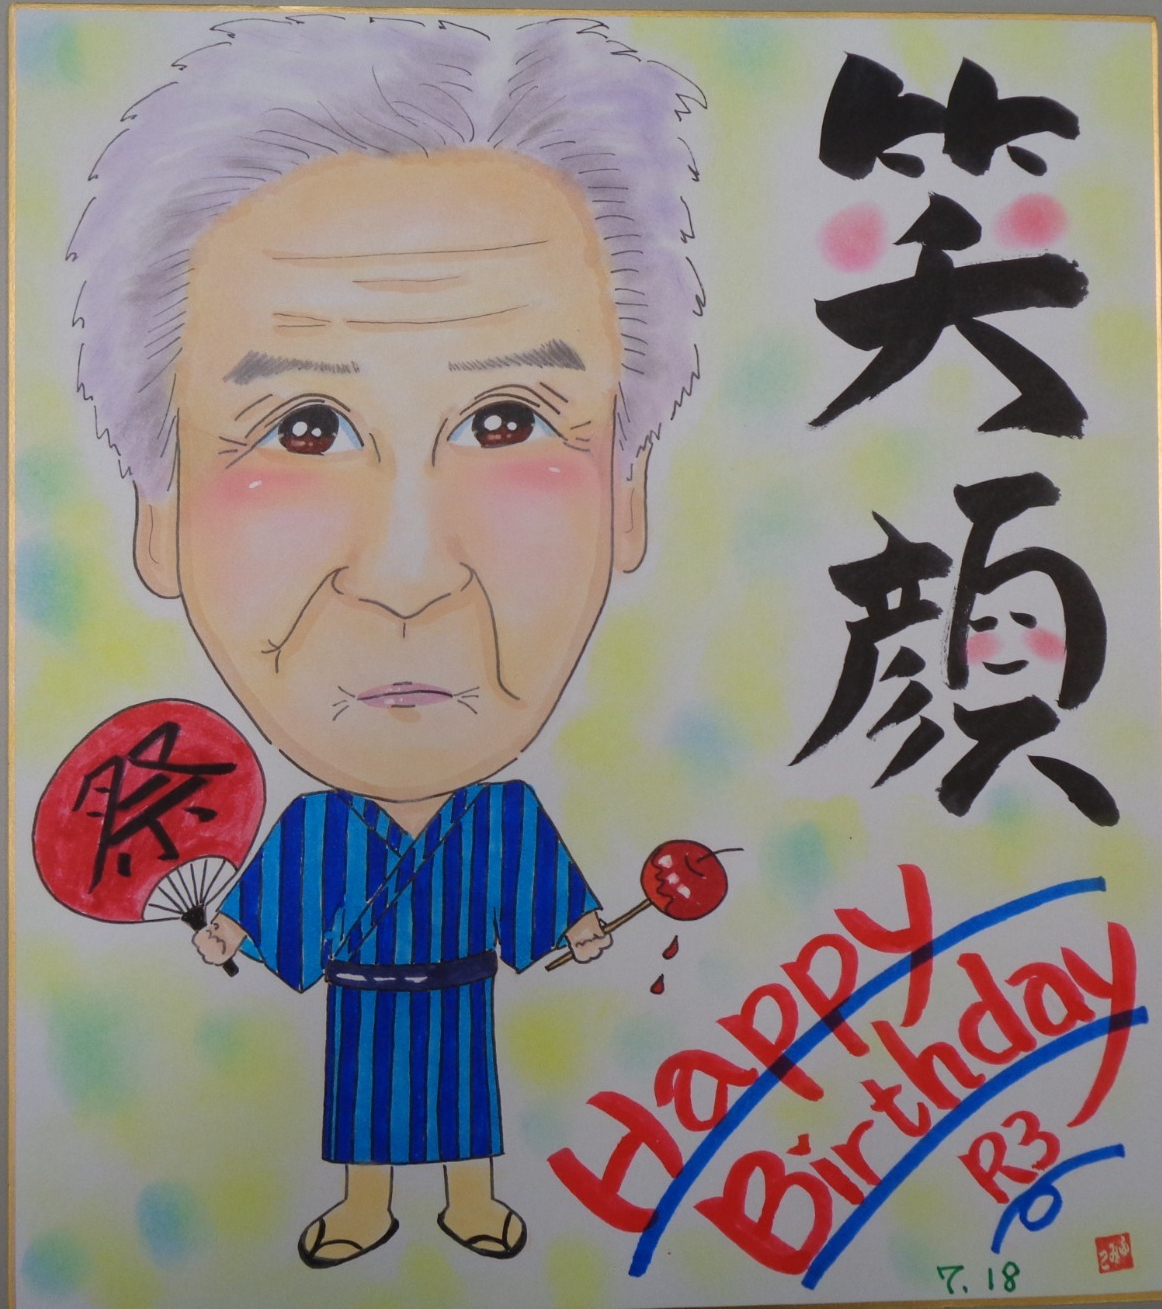 笑顔
祭
Happy
Birthday
R3
7.18